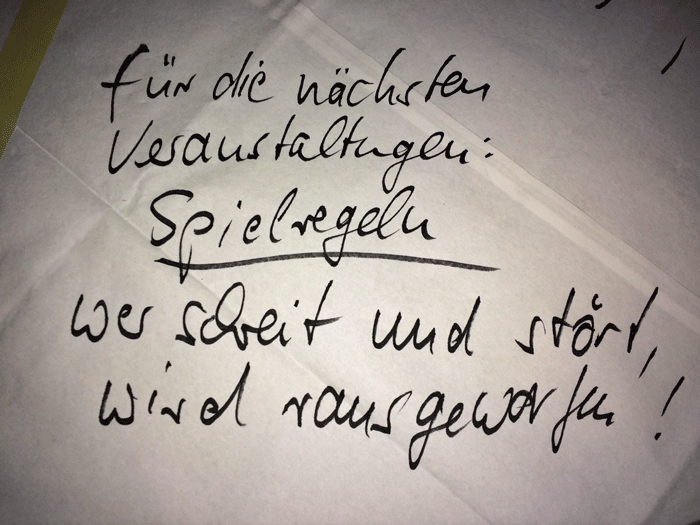 für die nächsten
Veranstaltungen:
Spielregeln
wer schreit und stört,
wird rausgeworfen!